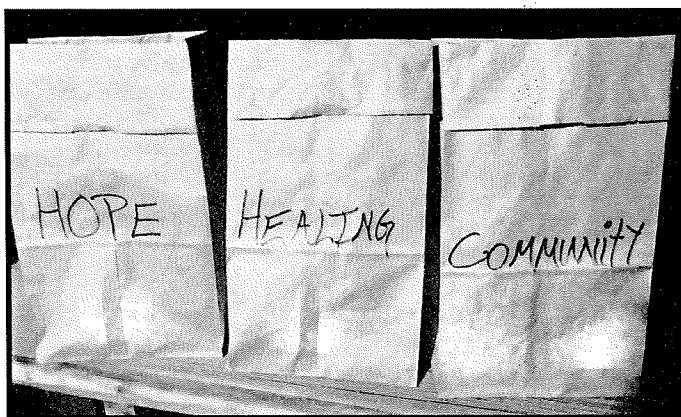 HOPE
HEALING
COMMUNitY